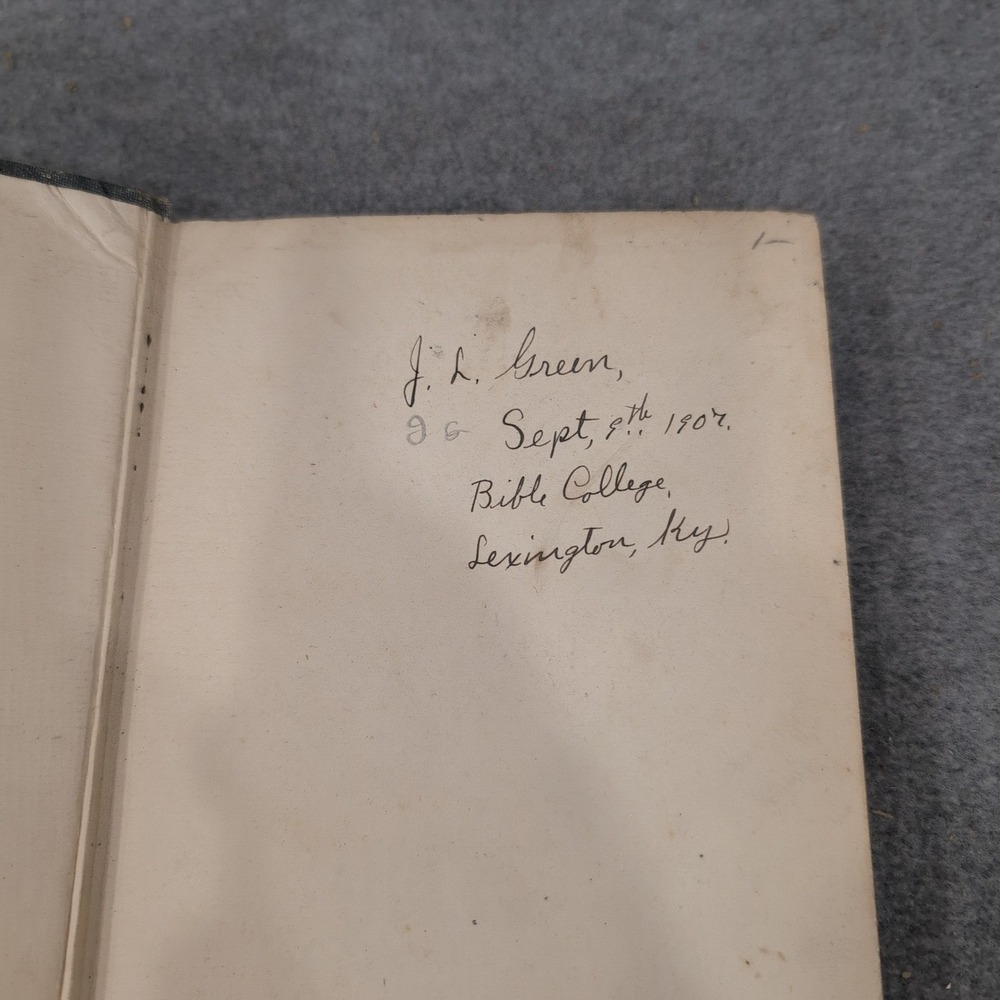 1-
J. L. Green,
Sept, 9th 1907.
Bible College,
Lexington, Ky.